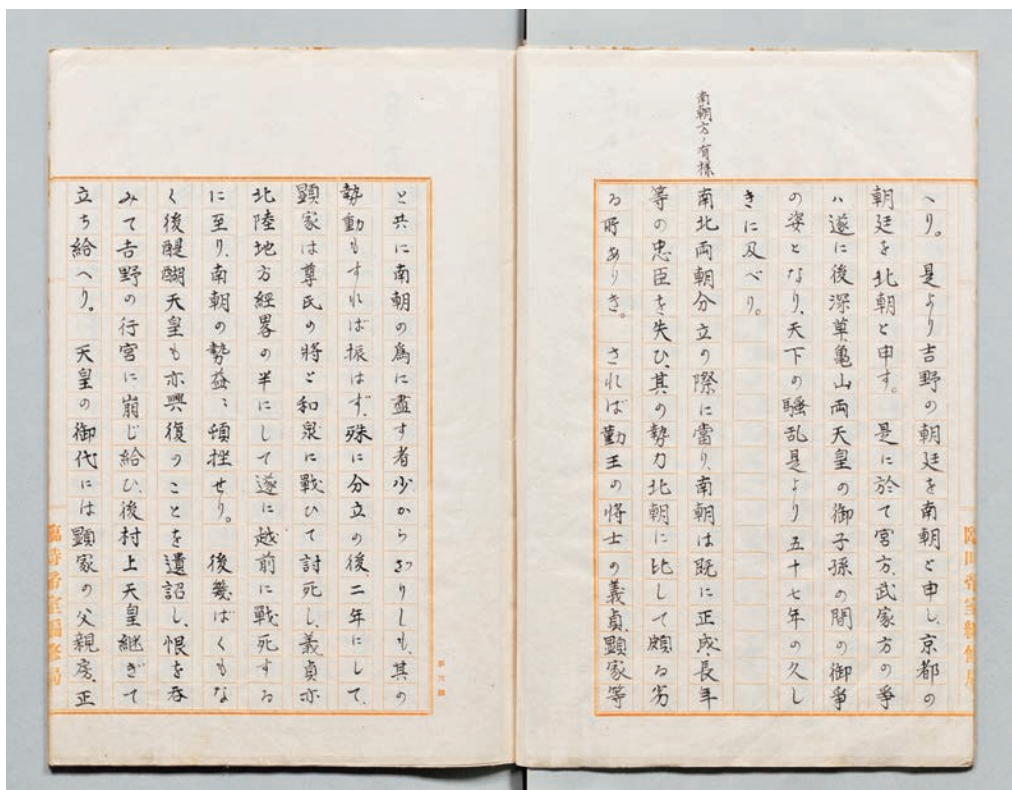 南朝方ノ有様
へり。是より吉野の朝廷を南朝と申し、京都の
朝廷を北朝と申す。是に於て宮方、武家方の爭
ハ遂に後深草、亀山両天皇の御子孫の間の御爭
の姿となり、天下の騒乱是より五十七年の久し
きに及べり。
南北両朝分立の際に當り、南朝は既に正成、長年
等の忠臣を失ひ、其の勢力北朝に比して頗る劣
る所ありき。されば勤王の将士の義貞、顕家等
と共に南朝の爲に盡す者少からざりしも、其の
勢動もすれば振はず、殊に分立の後、二年にして、
顕家は尊氏の將と和泉に戰ひて討死し、義貞亦
北陸地方經畧の半にして遂に越前に戰死する
に至り、南朝の勢益〻頓挫せり。後幾ばくもな
く後醍醐天皇も亦興復のことを遺詔し、恨を呑
みて吉野の行宮に崩じ給ひ、後村上天皇継ぎて
立ち給へり。天皇の御代には顕家の父親房、正
臨時帝室編修局
臨時帝室編修局